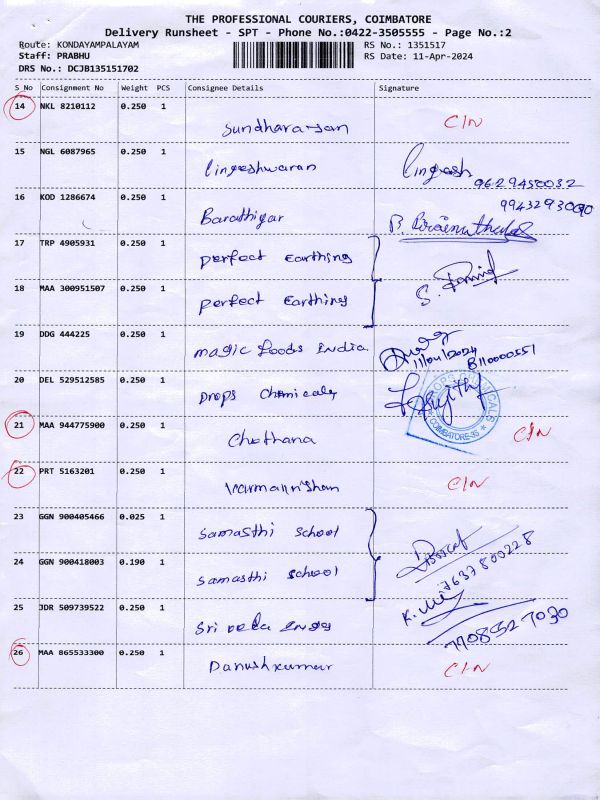 THE PROFESSIONAL COURIERS, COIMBATORE
Delivery Runsheet - SPT - Phone No.:0422-3505555 - Page No.:2
Route: KONDAYAMPALAYAM RS No.: 1351517
Staff: PRABHU RS Date: 11-Apr-2024
DRS No.: DCJB135151702
S_No Consignment No Weight PCS Consignee Details Signature
14 NKL 8210112 0.250 1
Sundhara-san C/N
15 NGL 6087965 0.250 1
Lingeshwaran Lingesh
9629450032
16 KOD 1286674 0.250 1
9943293090
Barathiyar
17 TRP 4905931 0.250 1
Perfect Earthing
18 MAA 300951507 0.250 1
Perfect Earthing
19 DDG 444225 0.250 1
Magic Foods India
11/04/2024
20 DEL 529512585 0.250 1
Drops Chemicals
DROPS CHEMICALS
COIMBATORE-35
21 MAA 944775900 0.250 1
Chethana C/N
22 PRT 5163201 0.250 1
C/N
23 GGN 900405466 0.025 1
Samasthi School
24 GGN 900418003 0.190 1
7637800228
Samasthi School
25 JDR 509739522 0.250 1
Sri
7708527030
26 MAA 865533300 0.250 1
Danushkumar C/N